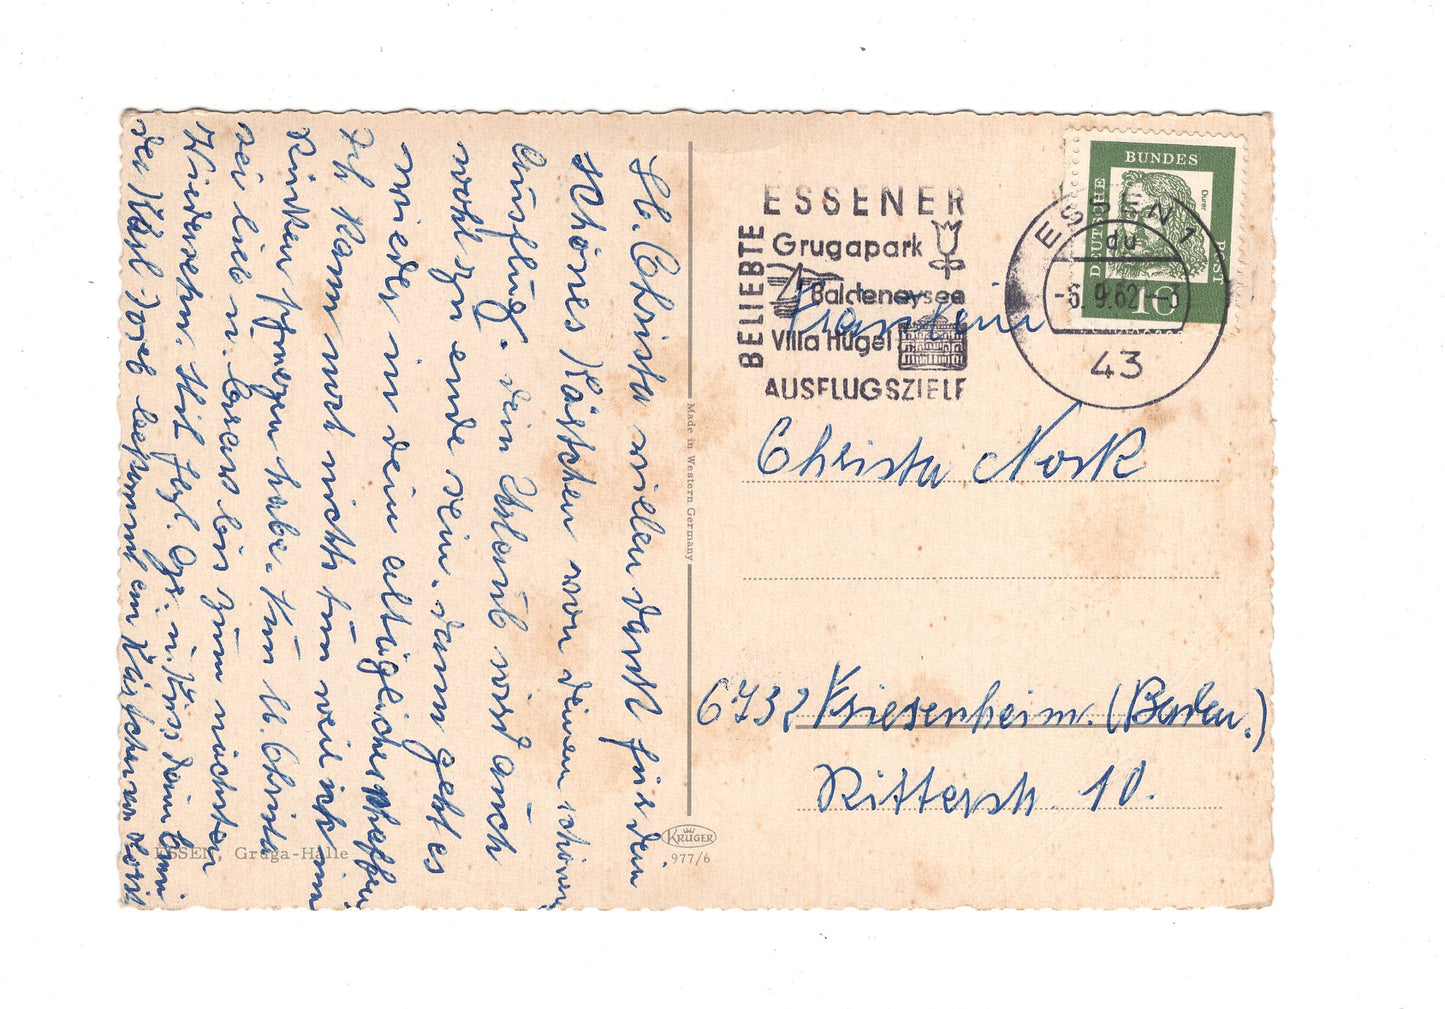 Lb. Christa vielen dank für dein
schönes Kärtchen von deinem schönen
Ausflug. dein Urlaub wird auch
wohl zu ende sein. dann geht es
wieder in dein alltägliches
Ich kann noch nichts tun weil ich im
Rücken habe. Nun lb. Christa
sei lieb u. brav bis zum nächsten
Wiedersehn. Mit herzl. Grs. u. Kuss dein
der Karl-Josef bekommt ein Kärtchen von
ESSEN, Gruga-Halle
Made in Western Germany
KRÜGER
977/6
BELIEBTE
ESSENER
Grugapark
Baldeneysee
Villa Hügel
AUSFLUGSZIELE
ESSEN 1
du
-6.9.62
43
DEUTSCHE
BUNDES
POST
Dürer
10
Fräulein
Christa Nock
6732 Friesenheim. (Baden.)
Ritterstr. 10.